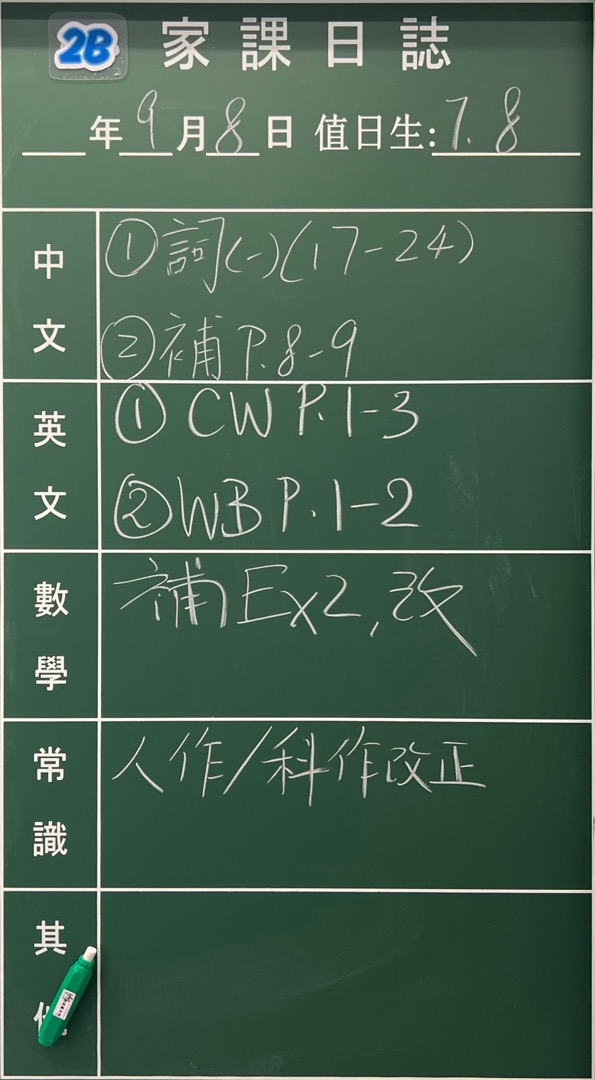 2B 家課日誌
年9月8日 值日生: 7. 8
中文
①詞(一)(17-24)
②補P.8-9
英文
①CW P.1-3
②WB P.1-2
數學
補Ex2,改
常識
人作/科作改正
其